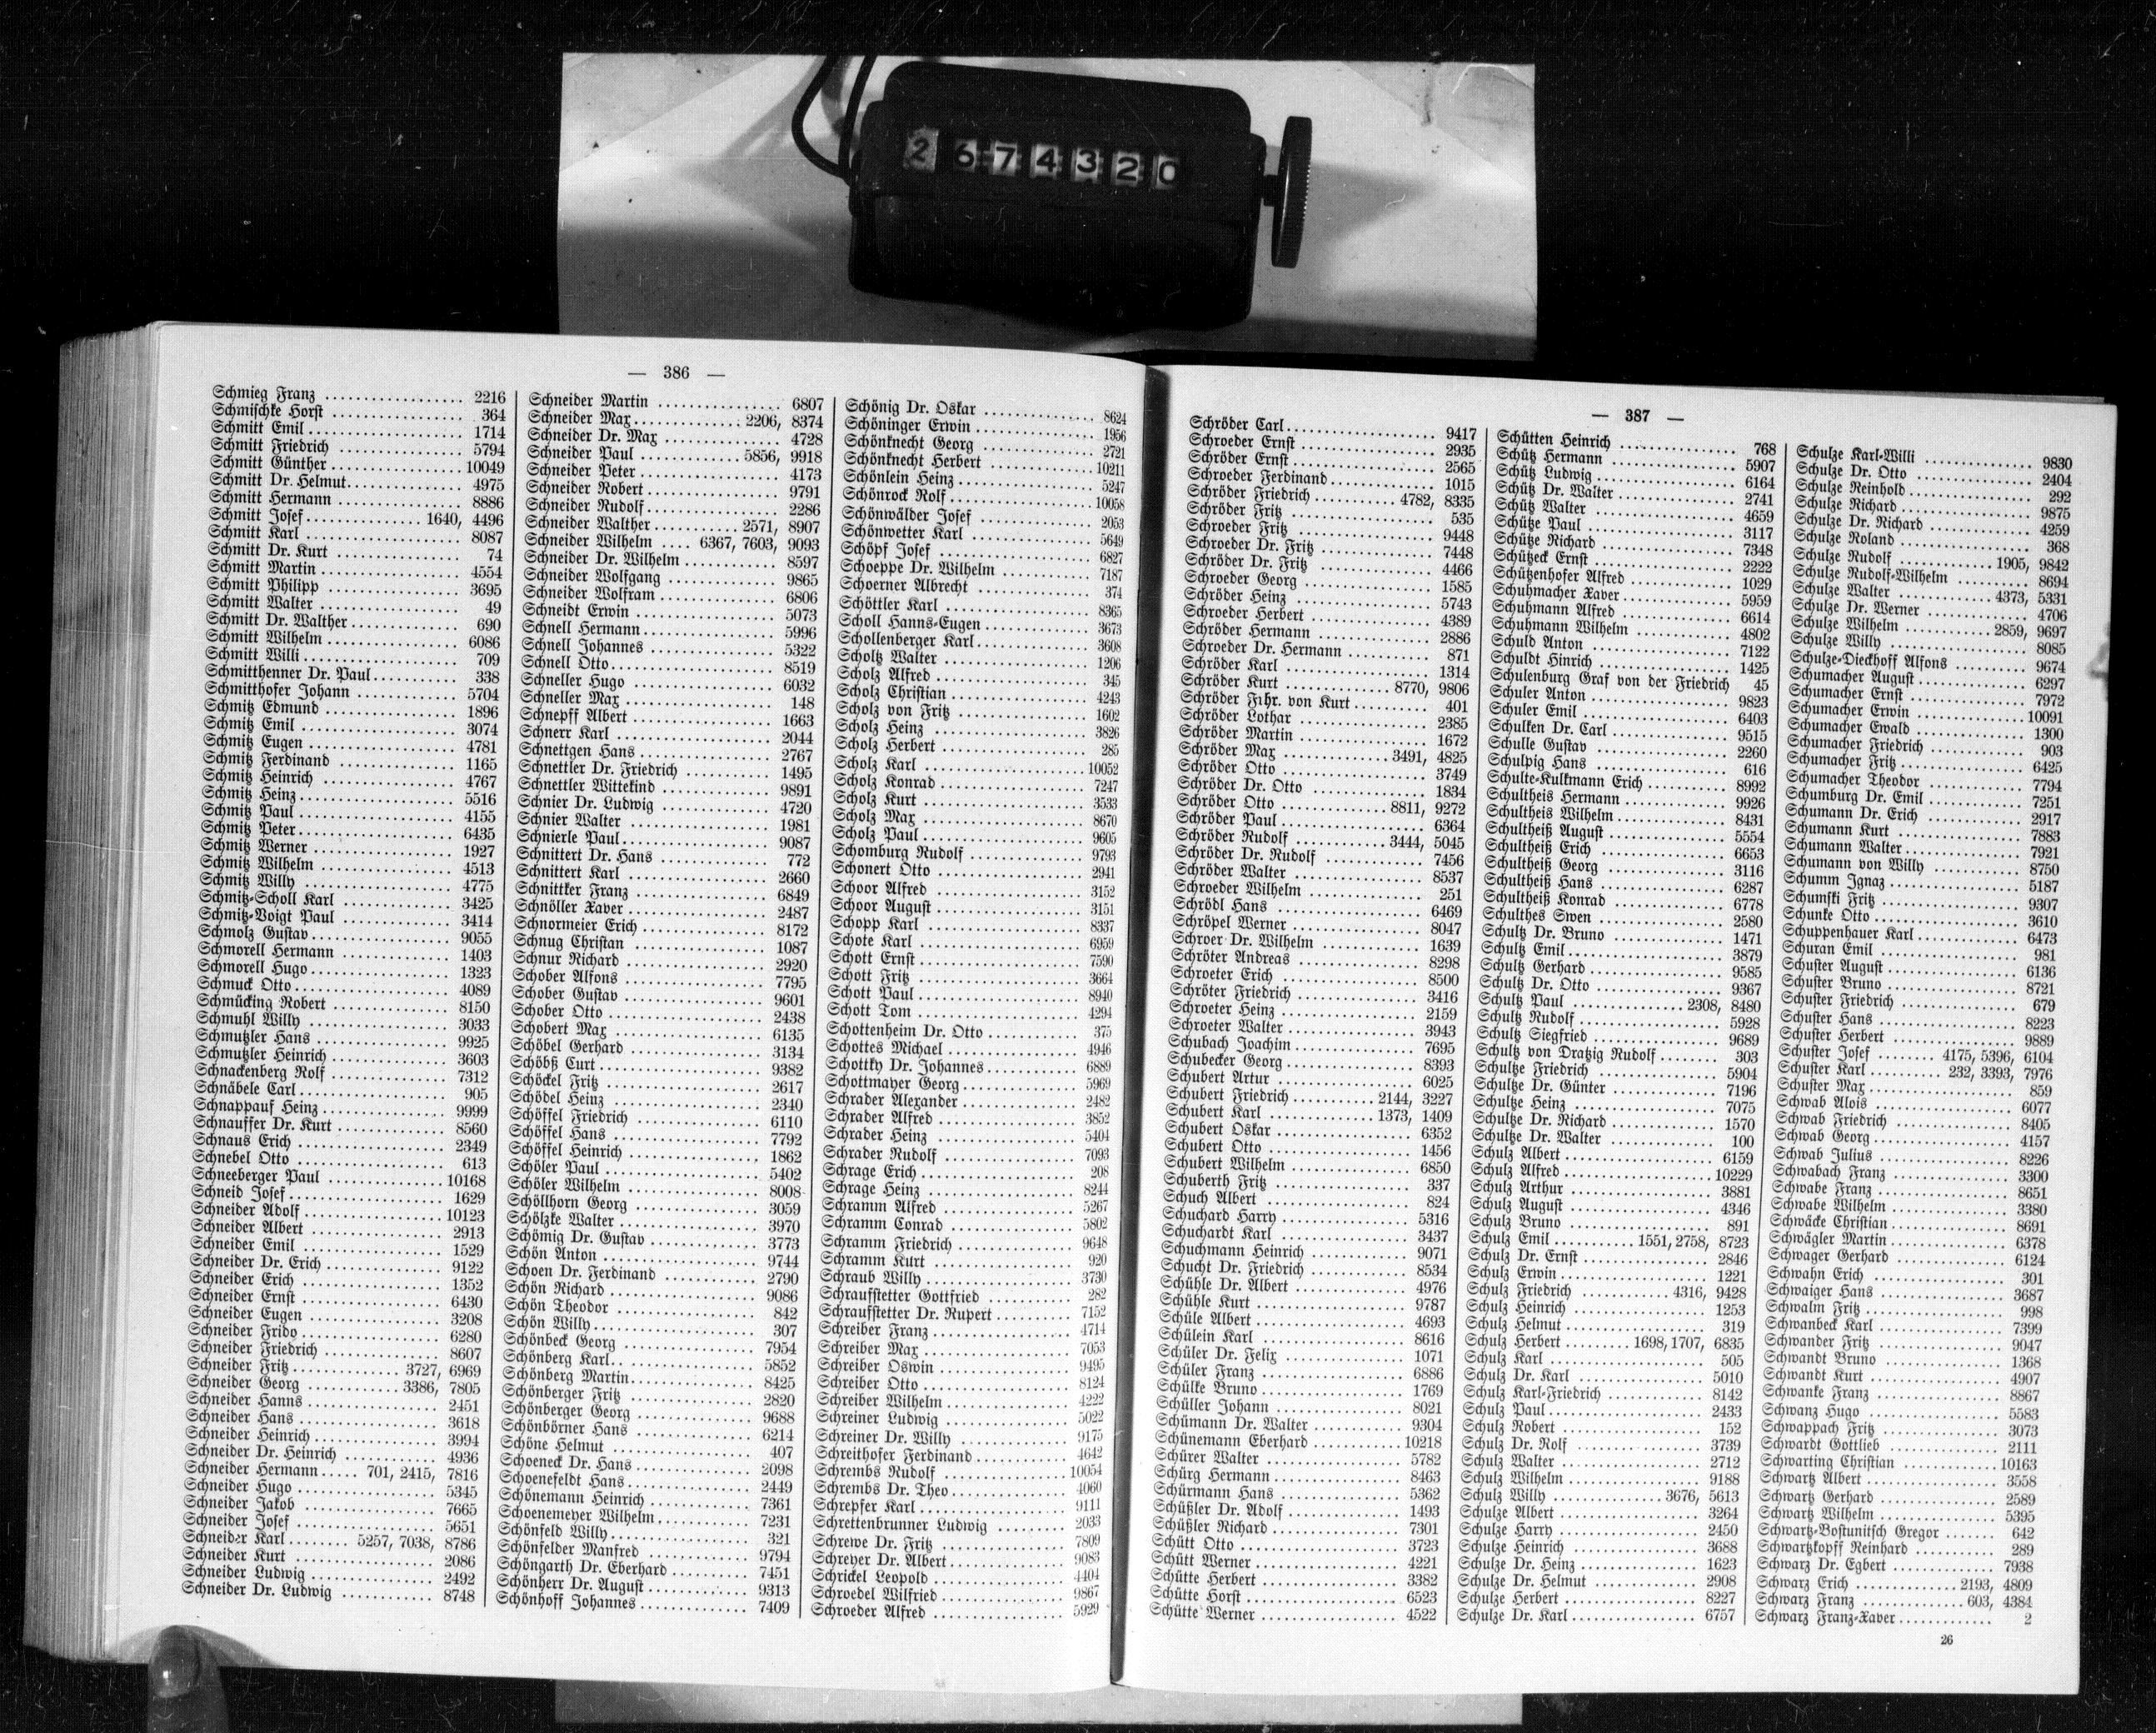 2674320
— 386 —
Schmieg Franz .................. 2216
Schmischke Horst ................. 364
Schmitt Emil .................... 1714
Schmitt Friedrich ................. 5794
Schmitt Günther ................. 10049
Schmitt Dr. Helmut ............... 4975
Schmitt Hermann ................ 8886
Schmitt Josef ............... 1640, 4496
Schmitt Karl .................... 8087
Schmitt Dr. Kurt ................. 74
Schmitt Martin .................. 4554
Schmitt Philipp .................. 3695
Schmitt Walter .................. 49
Schmitt Dr. Walther .............. 690
Schmitt Wilhelm ................. 6086
Schmitt Willi .................... 709
Schmitthenner Dr. Paul ............ 338
Schmitthofer Johann .............. 5704
Schmitz Edmund ................. 1896
Schmitz Emil .................... 3074
Schmitz Eugen ................... 4781
Schmitz Ferdinand ................ 1165
Schmitz Heinrich ................. 4767
Schmitz Heinz ................... 5516
Schmitz Paul .................... 4155
Schmitz Peter .................... 6435
Schmitz Werner .................. 1927
Schmitz Wilhelm ................. 4513
Schmitz Willy ................... 4775
Schmitz-Scholl Karl ............... 3425
Schmitz-Voigt Paul ............... 3414
Schmolz Gustav .................. 9055
Schmorell Hermann ............... 1403
Schmorell Hugo .................. 1323
Schmuck Otto .................... 4089
Schmücking Robert ............... 8150
Schmuhl Willy ................... 3033
Schmutzler Hans ................. 9925
Schmutzler Heinrich ............... 3603
Schnackenberg Rolf ............... 7312
Schnäbele Carl ................... 905
Schnappauf Heinz ................ 9999
Schnauffer Dr. Kurt ............... 8560
Schnaus Erich ................... 2349
Schnebel Otto .................... 613
Schneeberger Paul ................ 10168
Schneid Josef .................... 1629
Schneider Adolf .................. 10123
Schneider Albert .................. 2913
Schneider Emil ................... 1529
Schneider Dr. Erich ............... 9122
Schneider Erich .................. 1352
Schneider Ernst .................. 6430
Schneider Eugen ................. 3208
Schneider Frido .................. 6280
Schneider Friedrich ............... 8607
Schneider Fritz .............. 3727, 6969
Schneider Georg ............. 3386, 7805
Schneider Hanns ................. 2451
Schneider Hans .................. 3618
Schneider Heinrich ............... 3994
Schneider Dr. Heinrich ............ 4936
Schneider Hermann ..... 701, 2415, 7816
Schneider Hugo .................. 5345
Schneider Jakob .................. 7665
Schneider Josef .................. 5651
Schneider Karl ........ 5257, 7038, 8786
Schneider Kurt ................... 2086
Schneider Ludwig ................ 2492
Schneider Dr. Ludwig ............. 8748
Schneider Martin ................. 6807
Schneider Max ............... 2206, 8374
Schneider Dr. Max ................ 4728
Schneider Paul .............. 5856, 9918
Schneider Peter .................. 4173
Schneider Robert ................. 9791
Schneider Rudolf ................. 2286
Schneider Walther ............ 2571, 8907
Schneider Wilhelm .... 6367, 7603, 9093
Schneider Dr. Wilhelm ............ 8597
Schneider Wolfgang ............... 9865
Schneider Wolfram ............... 6806
Schneidt Erwin ................... 5073
Schnell Hermann ................. 5996
Schnell Johannes ................. 5322
Schnell Otto ..................... 8519
Schneller Hugo .................. 6032
Schneller Max ................... 148
Schnepff Albert .................. 1663
Schnerr Karl .................... 2044
Schnettgen Hans ................. 2767
Schnettler Dr. Friedrich ............ 1495
Schnettler Wittekind .............. 9891
Schnier Dr. Ludwig ............... 4720
Schnier Walter ................... 1981
Schnierle Paul ................... 9087
Schnittert Dr. Hans ............... 772
Schnittert Karl ................... 2660
Schnittker Franz ................. 6849
Schnöller Xaver .................. 2487
Schnormeier Erich ................ 8172
Schnug Christian ................. 1087
Schnur Richard .................. 2920
Schober Alfons ................... 7795
Schober Gustav .................. 9601
Schober Otto .................... 2438
Schobert Max .................... 6135
Schöbel Gerhard ................. 3134
Schöbß Curt ..................... 9382
Schöckel Fritz ................... 2617
Schödel Heinz ................... 2340
Schöffel Friedrich ................ 6110
Schöffel Hans ................... 7792
Schöffel Heinrich ................. 1862
Schöler Paul .................... 5402
Schöler Wilhelm ................. 8008
Schöllhorn Georg ................ 3059
Schölzke Walter .................. 3970
Schömig Dr. Gustav .............. 3773
Schön Anton .................... 9744
Schoen Dr. Ferdinand ............. 2790
Schön Richard ................... 9086
Schön Theodor ................... 842
Schön Willy ..................... 307
Schönbeck Georg ................. 7954
Schönberg Karl ................... 5852
Schönberg Martin ................. 8425
Schönberger Fritz ................ 2820
Schönberger Georg ............... 9688
Schönbörner Hans ................ 6214
Schöne Helmut .................. 407
Schoeneck Dr. Hans .............. 2098
Schoenefeldt Hans ................ 2449
Schönemann Heinrich ............. 7361
Schoenemeyer Wilhelm ............ 7231
Schönfeld Willy .................. 321
Schönfelder Manfred .............. 9794
Schöngarth Dr. Eberhard .......... 7451
Schönherr Dr. August ............. 9313
Schönhoff Johannes ............... 7409
Schönig Dr. Oskar ................ 8624
Schöninger Erwin ................ 1956
Schönknecht Georg ............... 2721
Schönknecht Herbert .............. 10211
Schönlein Heinz .................. 5247
Schönrock Rolf ................... 10058
Schönwälder Josef ................ 2053
Schönwetter Karl ................. 5649
Schöpf Josef ..................... 6827
Schoeppe Dr. Wilhelm ............ 7187
Schoerner Albrecht ............... 374
Schöttler Karl .................... 8365
Scholl Hanns-Eugen .............. 3673
Schollenberger Karl ............... 3608
Scholtz Walter ................... 1206
Scholz Alfred .................... 345
Scholz Christian .................. 4243
Scholz von Fritz .................. 1602
Scholz Heinz .................... 3826
Scholz Herbert ................... 285
Scholz Karl ..................... 10052
Scholz Konrad ................... 7247
Scholz Kurt ..................... 3533
Scholz Max ..................... 8670
Scholz Paul ..................... 9605
Schomburg Rudolf ................ 9793
Schonert Otto .................... 2941
Schoor Alfred .................... 3152
Schoor August ................... 3151
Schopp Karl .................... 8337
Schote Karl ..................... 6959
Schott Ernst ..................... 7590
Schott Fritz ..................... 3664
Schott Paul ..................... 8940
Schott Tom ..................... 4294
Schottenheim Dr. Otto ............ 375
Schottes Michael ................. 4946
Schottky Dr. Johannes ............. 6889
Schottmayer Georg ............... 5969
Schrader Alexander ............... 2482
Schrader Alfred .................. 3852
Schrader Heinz .................. 5404
Schrader Rudolf .................. 7093
Schrage Erich .................... 208
Schrage Heinz ................... 8244
Schramm Alfred ................. 5267
Schramm Conrad ................. 5802
Schramm Friedrich ............... 9648
Schramm Kurt ................... 920
Schraub Willy ................... 3730
Schraufstetter Gottfried ............ 282
Schraufstetter Dr. Rupert .......... 7152
Schreiber Franz .................. 4714
Schreiber Max ................... 7053
Schreiber Oswin ................. 9495
Schreiber Otto ................... 8124
Schreiber Wilhelm ................ 4222
Schreiner Ludwig ................ 5022
Schreiner Dr. Willy ............... 9175
Schreithofer Ferdinand ............ 4642
Schrembs Rudolf ................. 10054
Schrembs Dr. Theo ............... 4060
Schrepfer Karl ................... 9111
Schrettenbrunner Ludwig .......... 2033
Schrewe Dr. Fritz ................ 7809
Schreyer Dr. Albert ............... 9083
Schrickel Leopold ................. 4404
Schroedel Wilfried ................ 9867
Schroeder Alfred ................. 5929
— 387 —
Schröder Carl .................... 9417
Schroeder Ernst .................. 2935
Schröder Ernst ................... 2565
Schroeder Ferdinand .............. 1015
Schröder Friedrich ........... 4782, 8335
Schröder Fritz ................... 535
Schroeder Fritz .................. 9448
Schroeder Dr. Fritz ............... 7448
Schröder Dr. Fritz ................ 4466
Schroeder Georg ................. 1585
Schröder Heinz .................. 5743
Schroeder Herbert ................ 4389
Schröder Hermann ............... 2886
Schroeder Dr. Hermann ........... 871
Schröder Karl .................... 1314
Schröder Kurt ............... 8770, 9806
Schröder Frhr. von Kurt ........... 401
Schröder Lothar .................. 2385
Schröder Martin .................. 1672
Schröder Max ............... 3491, 4825
Schröder Otto .................... 3749
Schröder Dr. Otto ................ 1834
Schröder Otto ............... 8811, 9272
Schröder Paul .................... 6364
Schröder Rudolf ............. 3444, 5045
Schröder Dr. Rudolf .............. 7456
Schröder Walter .................. 8537
Schroeder Wilhelm ............... 251
Schrödl Hans .................... 6469
Schröpel Werner ................. 8047
Schroer Dr. Wilhelm .............. 1639
Schröter Andreas ................. 8298
Schroeter Erich ................... 8500
Schröter Friedrich ................ 3416
Schroeter Heinz .................. 2159
Schroeter Walter ................. 3943
Schubach Joachim ................ 7695
Schubecker Georg ................ 8393
Schubert Artur ................... 6025
Schubert Friedrich ........... 2144, 3227
Schubert Karl ............... 1373, 1409
Schubert Oskar .................. 6352
Schubert Otto .................... 1456
Schubert Wilhelm ................ 6850
Schuberth Fritz .................. 337
Schuch Albert ................... 824
Schuchard Harry ................. 5316
Schuchardt Karl .................. 3437
Schuchmann Heinrich ............. 9071
Schucht Dr. Friedrich ............. 8534
Schühle Dr. Albert ................ 4976
Schühle Kurt .................... 9787
Schüle Albert .................... 4693
Schülein Karl .................... 8616
Schüler Dr. Felix ................. 1071
Schüler Franz ................... 6886
Schülke Bruno ................... 1769
Schüller Johann .................. 8021
Schümann Dr. Walter ............. 9304
Schünemann Eberhard ............ 10218
Schürer Walter ................... 5782
Schürg Hermann ................. 8463
Schürmann Hans ................. 5362
Schüßler Dr. Adolf ............... 1493
Schüßler Richard ................. 7301
Schütt Otto ..................... 3723
Schütt Werner ................... 4221
Schütte Herbert .................. 3382
Schütte Horst .................... 6523
Schütte Werner .................. 4522
Schütten Heinrich ................ 768
Schütz Hermann ................. 5907
Schütz Ludwig ................... 6164
Schütz Dr. Walter ................ 2741
Schütz Walter ................... 4659
Schütze Paul .................... 3117
Schütze Richard .................. 7348
Schützeck Ernst .................. 2222
Schützenhofer Alfred .............. 1029
Schuhmacher Xaver .............. 5959
Schuhmann Alfred ................ 6614
Schuhmann Wilhelm .............. 4802
Schuld Anton .................... 7122
Schuldt Hinrich .................. 1425
Schulenburg Graf von der Friedrich 45
Schuler Anton ................... 9823
Schuler Emil .................... 6403
Schulken Dr. Carl ................ 9515
Schulle Gustav ................... 2260
Schulpig Hans ................... 616
Schulte-Kulkmann Erich ........... 8992
Schultheis Hermann .............. 9926
Schultheis Wilhelm ............... 8431
Schultheiß August ................ 5554
Schultheiß Erich .................. 6653
Schultheiß Georg ................. 3116
Schultheiß Hans .................. 6287
Schultheiß Konrad ................ 6778
Schulthes Swen .................. 2580
Schultz Dr. Bruno ................ 1471
Schultz Emil ..................... 3879
Schultz Gerhard .................. 9585
Schultz Dr. Otto ................. 9367
Schultz Paul ................ 2308, 8480
Schultz Rudolf ................... 5928
Schultz Siegfried ................. 9689
Schultz von Dratzig Rudolf ........ 303
Schultze Friedrich ................ 5904
Schultze Dr. Günter .............. 7196
Schultze Heinz ................... 7075
Schultze Dr. Richard .............. 1570
Schultze Dr. Walter ............... 100
Schulz Albert .................... 6159
Schulz Alfred .................... 10229
Schulz Arthur ................... 3881
Schulz August ................... 4346
Schulz Bruno .................... 891
Schulz Emil .......... 1551, 2758, 8723
Schulz Dr. Ernst ................. 2846
Schulz Erwin .................... 1221
Schulz Friedrich ............. 4316, 9428
Schulz Heinrich .................. 1253
Schulz Helmut ................... 319
Schulz Herbert ........ 1698, 1707, 6835
Schulz Karl ..................... 505
Schulz Dr. Karl .................. 5010
Schulz Karl-Friedrich ............. 8142
Schulz Paul ..................... 2433
Schulz Robert ................... 152
Schulz Dr. Rolf .................. 3739
Schulz Walter .................... 2712
Schulz Wilhelm .................. 9188
Schulz Willy ................ 3676, 5613
Schulze Albert ................... 3264
Schulze Harry ................... 2450
Schulze Heinrich ................. 3688
Schulze Dr. Heinz ................ 1623
Schulze Dr. Helmut ............... 2908
Schulze Herbert .................. 8227
Schulze Dr. Karl ................. 6757
Schulze Karl-Willi ................ 9830
Schulze Dr. Otto ................. 2404
Schulze Reinhold ................. 292
Schulze Richard .................. 9875
Schulze Dr. Richard .............. 4259
Schulze Roland .................. 368
Schulze Rudolf .............. 1905, 9842
Schulze Rudolf-Wilhelm ........... 8694
Schulze Walter .............. 4373, 5331
Schulze Dr. Werner ............... 4706
Schulze Wilhelm ............. 2859, 9697
Schulze Willy .................... 8085
Schulze-Dieckhoff Alfons .......... 9674
Schumacher August ............... 6297
Schumacher Ernst ................ 7972
Schumacher Erwin ............... 10091
Schumacher Ewald ............... 1300
Schumacher Friedrich ............. 903
Schumacher Fritz ................ 6425
Schumacher Theodor ............. 7794
Schumburg Dr. Emil .............. 7251
Schumann Dr. Erich .............. 2917
Schumann Kurt .................. 7883
Schumann Walter ................ 7921
Schumann von Willy ............. 8750
Schumm Ignaz .................. 5187
Schumski Fritz .................. 9307
Schunke Otto .................... 3610
Schuppenhauer Karl .............. 6473
Schuran Emil .................... 981
Schuster August .................. 6136
Schuster Bruno .................. 8721
Schuster Friedrich ................ 679
Schuster Hans ................... 8223
Schuster Herbert ................. 9889
Schuster Josef ........ 4175, 5396, 6104
Schuster Karl .......... 232, 3393, 7976
Schuster Max .................... 859
Schwab Alois .................... 6077
Schwab Friedrich ................. 8405
Schwab Georg ................... 4157
Schwab Julius ................... 8226
Schwabach Franz ................ 3300
Schwabe Franz .................. 8651
Schwabe Wilhelm ................ 3380
Schwäcke Christian ............... 8691
Schwägler Martin ................ 6378
Schwager Gerhard ............... 6124
Schwahn Erich .................. 301
Schwaiger Hans ................. 3687
Schwalm Fritz ................... 998
Schwanbeck Karl ................. 7399
Schwander Fritz ................. 9047
Schwandt Bruno ................. 1368
Schwandt Kurt .................. 4907
Schwanke Franz ................. 8867
Schwanz Hugo .................. 5583
Schwappach Fritz ................ 3073
Schwardt Gottlieb ................ 2111
Schwarting Christian ............. 10163
Schwartz Albert .................. 3558
Schwartz Gerhard ................ 2589
Schwartz Wilhelm ................ 5395
Schwartz-Bostunitsch Gregor ....... 642
Schwartzkopff Reinhard ........... 289
Schwarz Dr. Egbert .............. 7938
Schwarz Erich ............... 2193, 4809
Schwarz Franz ............... 603, 4384
Schwarz Franz-Xaver ............. 2
26